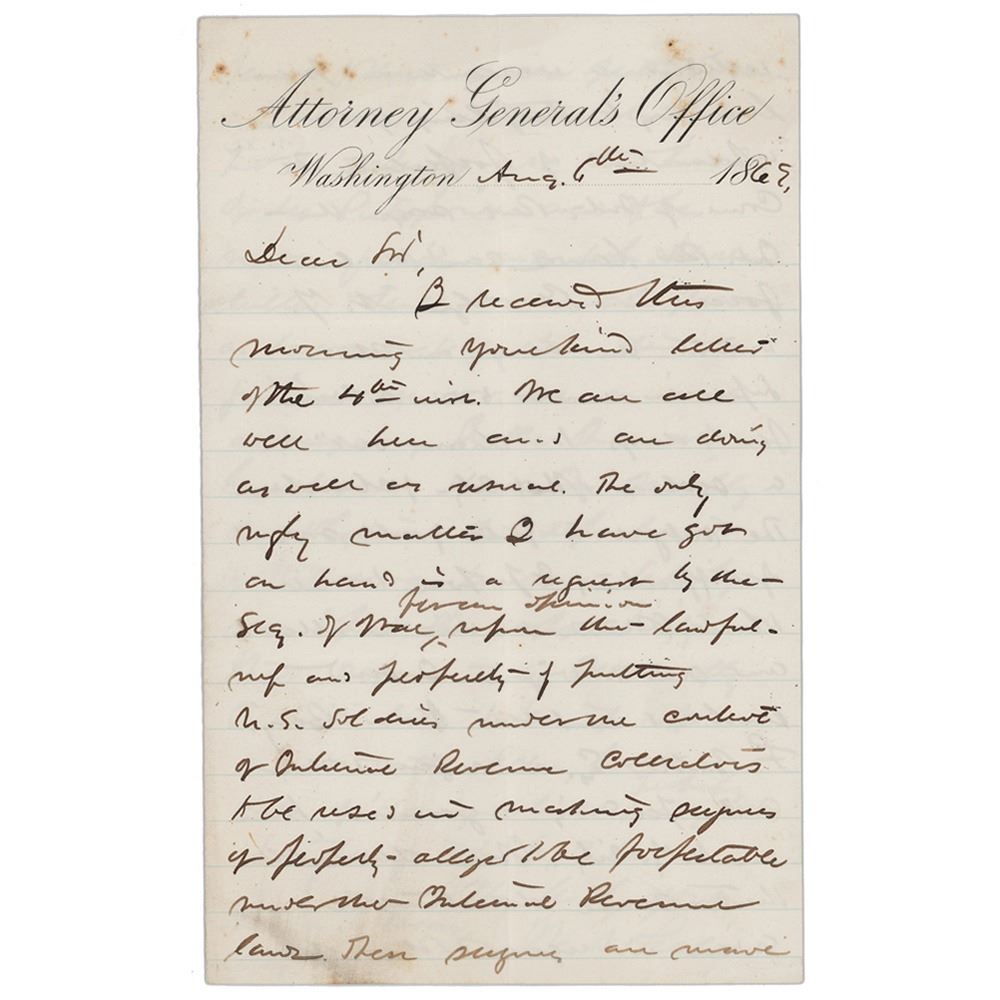 Attorney General's Office
Washington Aug. 6th 1869,
Dear Sir,
I received this
morning your kind letter
of the 4th inst. We are all
well here and are doing
as well as usual. The only
ugly matter I have got
on hand is a request by the
for an opinion
Secy. of War, upon the lawful-
ness and property of putting
U.S. Soldiers under the control
of Internal Revenue Collectors
to be used in making seizures
of property alleged to be forfeitable
under the Internal Revenue
laws. These seizures are made